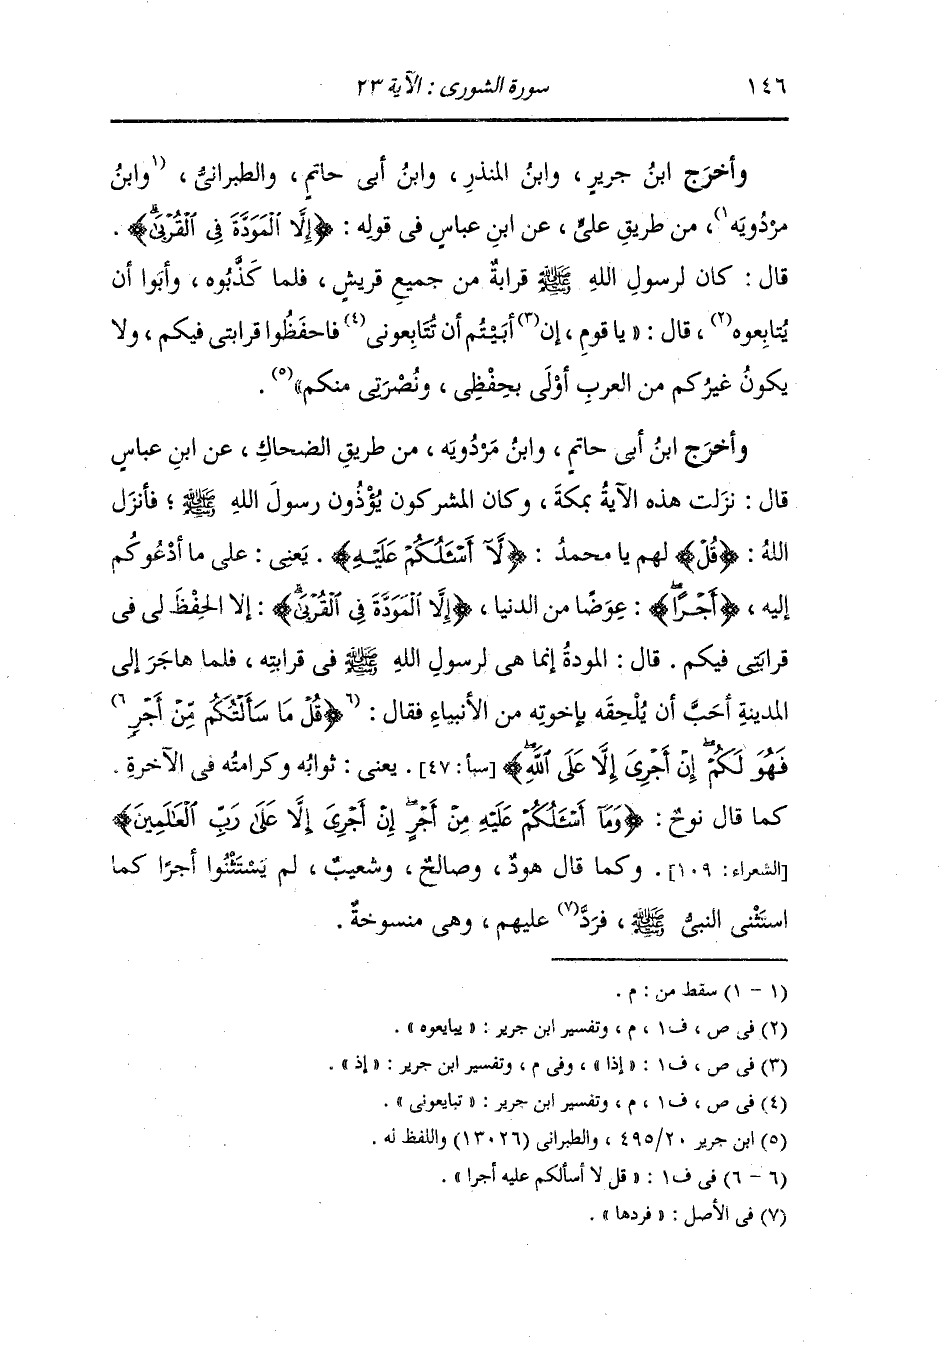 ١٤٦ سورة الشورى : الآية ٢٣
وأخرَج ابنُ جريرٍ ، وابنُ المنذرِ ، وابنُ أبى حاتمٍ ، والطبرانىُّ ، (١وابنُ
مرْدُويَه١) ، من طريقِ علىٍّ ، عن ابنِ عباسٍ فى قولِه : ﴿إِلَّا ٱلْمَوَدَّةَ فِى ٱلْقُرْبَىٰۗ﴾ .
قال : كان لرسولِ اللهِ ﷺ قرابةٌ من جميعِ قريشٍ ، فلما كَذَّبُوه ، وأبَوا أن
يُتابِعوه(٢) ، قال : « يا قومِ ، إن(٣) أبَيْتُم أن تُتَابِعونى(٤) فاحفَظُوا قرابتى فيكم ، ولا
يكونُ غيرُكم من العربِ أوْلَى بحِفْظِى ، ونُصْرَتِى منكم»(٥) .
وأخرَج ابنُ أبى حاتمٍ ، وابنُ مَرْدُويَه ، من طريقِ الضحاكِ ، عن ابنِ عباسٍ
قال : نزَلت هذه الآيةُ بمكةَ ، وكان المشركون يُؤْذُون رسولَ اللهِ ﷺ ؛ فأنزَل
اللهُ : ﴿قُلْ﴾ لهم يا محمدُ : ﴿لَّآ أَسْـَٔلُكُمْ عَلَيْهِ﴾ . يَعنى : على ما أدْعُوكُم
إليه ، ﴿أَجْرًاۖ﴾ : عِوَضًا من الدنيا ، ﴿إِلَّا ٱلْمَوَدَّةَ فِى ٱلْقُرْبَىٰۗ﴾ : إلا الحِفْظَ لى فى
قرابَتِى فيكم . قال : المودةُ إنما هى لرسولِ اللهِ ﷺ فى قرابتِه ، فلما هاجَرَ إلى
المدينةِ أحَبَّ أن يُلْحِقَه بإخوتِه من الأنبياءِ فقال : (٦﴿قُلْ مَا سَأَلْتُكُم مِّنْ أَجْرٍ٦)
فَهُوَ لَكُمْۖ إِنْ أَجْرِىَ إِلَّا عَلَى ٱللَّهِۖ﴾ [سبأ: ٤٧] . يعنى : ثوابُه وكرامتُه فى الآخرةِ .
كما قال نوحٌ : ﴿وَمَآ أَسْـَٔلُكُمْ عَلَيْهِ مِنْ أَجْرٍۖ إِنْ أَجْرِىَ إِلَّا عَلَىٰ رَبِّ ٱلْعَـٰلَمِينَ﴾
[الشعراء: ١٠٩] . وكما قال هودٌ ، وصالحٌ ، وشعيبٌ ، لم يَسْتَثْنُوا أجرًا كما
استَثْنى النبىُّ ﷺ ، فرَدَّ(٧) عليهم ، وهى منسوخةٌ .
(١ - ١) سقط من : م .
(٢) فى ص ، ف١ ، م ، وتفسير ابن جرير : « يبايعوه » .
(٣) فى ص ، ف١ : « إذا » ، وفى م ، وتفسير ابن جرير : « إذ » .
(٤) فى ص ، ف١ ، م ، وتفسير ابن جرير : « تبايعونى » .
(٥) ابن جرير ٤٩٥/٢٠ ، والطبرانى (١٣٠٢٦) واللفظ له .
(٦ - ٦) فى ف١ : « قل لا أسألكم عليه أجرا » .
(٧) فى الأصل : « فردها » .